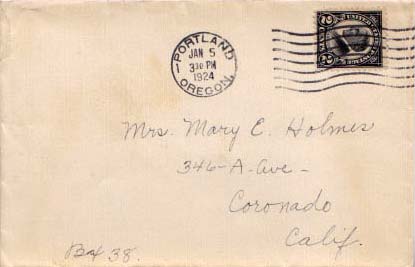 PORTLAND
JAN 5
3 30 PM
1924
OREGON.
Mrs. Mary C. Holmes
346-A-Ave-
Coronado
Calif.
Box 38.